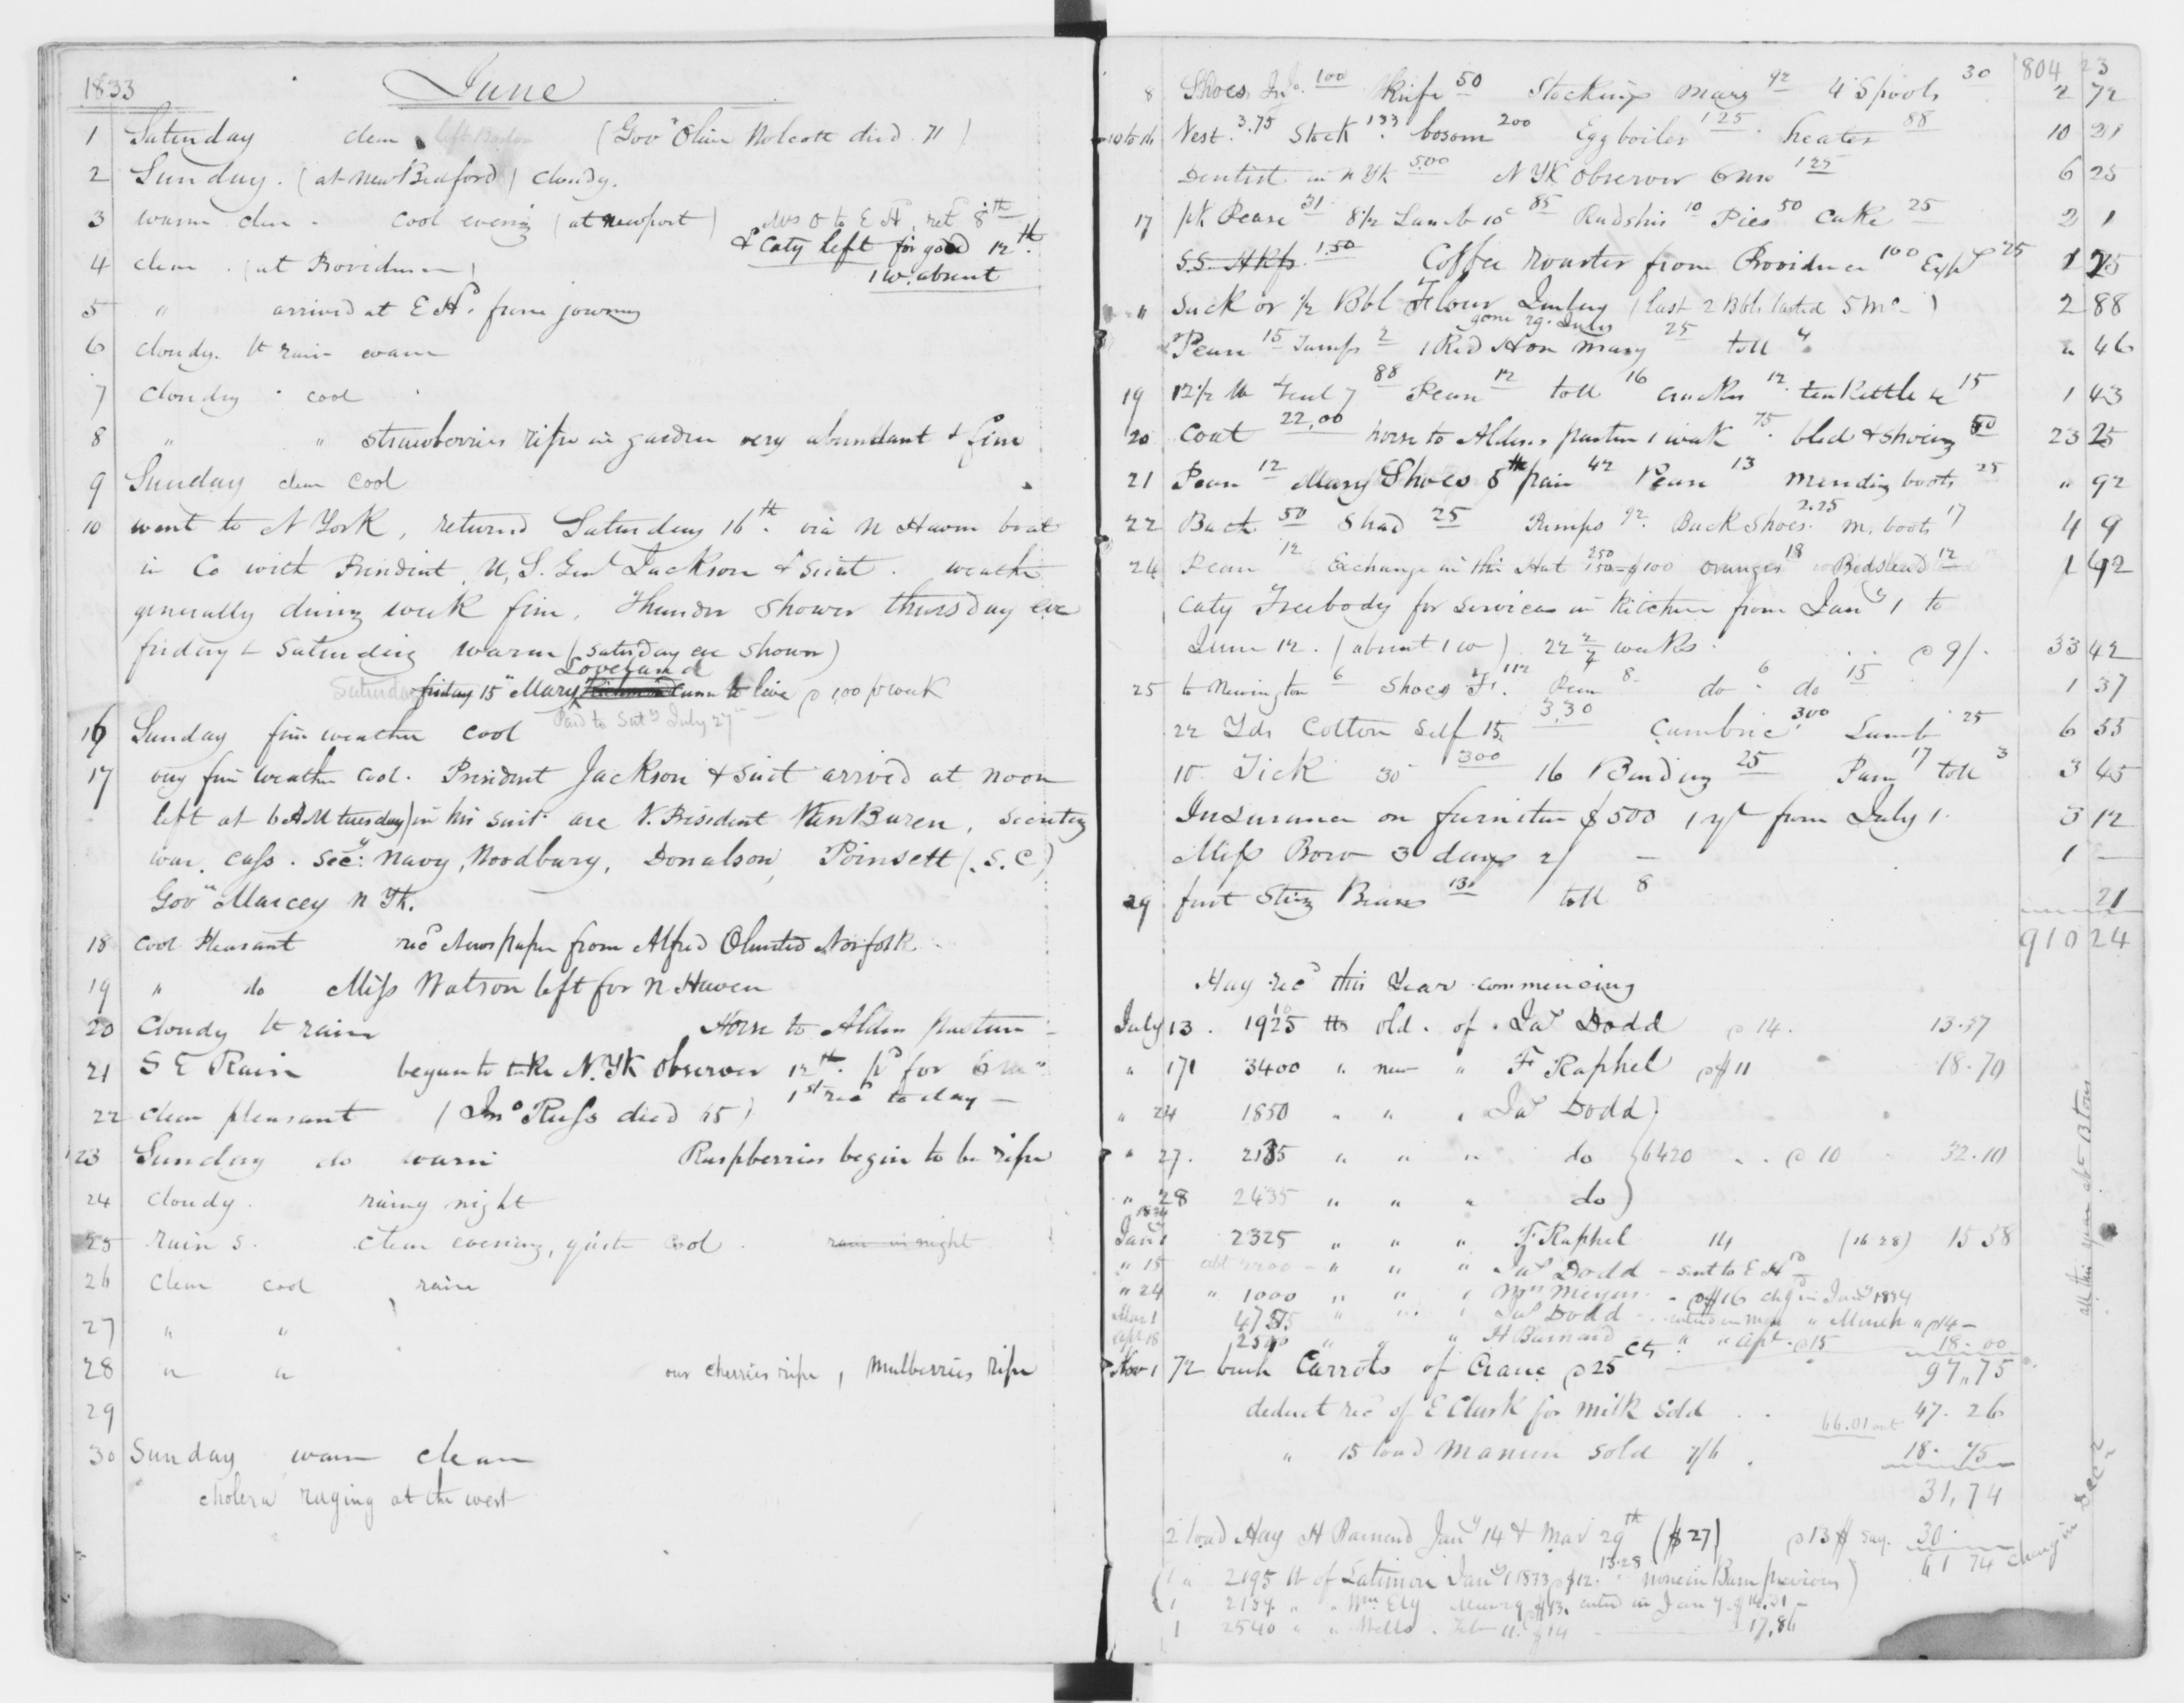 1833 June
1 Saturday clear left Boston (Govr Oliver Wolcott died. 71)
2 Sunday. (at New Bedford) cloudy.
3 warm clear - cool evening (at newport) to E H, ret 8th
& Caty left for good 12th.
1 w. absent
4 clear. (at Providence)
5 " arrived at E Hd. from journey
6 cloudy. lt rain warm
7 cloudy cool
8 " " strawberries ripe in garden very abundant & fine
9 Sunday clear cool
10 went to N York, returned Saturday 16th. via N Haven boat
in Co with President U, S. Genl Jackson & suit. weather
generally during week fine. Thunder shower thursday eve
friday & Saturday warm (saturday eve shower)
Loveland
Saturday friday 15" Mary came to live @ 1,00 pr week
Paid to Saty July 27th -
16 Sunday fine weather cool
17 very fine weather cool. President Jackson & suit arrived at noon
left at 6 AM tuesday) in his suit are V. President Van Buren, secretary
war, Cass. Secy: Navy, Woodbury, Donalson, Poinsett (S. C)
Govr Marcey N Yk.
18 cool Pleasant recd Newspaper from Alfred Olmsted Norfolk
19 " do Miss Watson left for N Haven
20 cloudy lt rain Horse to Alden pasture -
21 S E Rain began to take N. Yk Observer 12th. pd for 6 mo
1st recd to day -
22 clear pleasant (Jno Russ died 45)
23 Sunday do warm Raspberries begin to be ripe
24 cloudy. rainy night
25 rain S. clear evening, quite cool. rain in night
26 clear cool rain
27 " "
28 " " our cherries ripe, mulberries ripe
29
30 Sunday warm clear
cholera raging at the west
804 23
8 Shoes, Jno. 100 Knife 50 Stockings Mary 92 4 Spools 30 2 72
10 to 16 Vest. 3.75 Stock 133 bosom 200 Egg boiler 125. heater 88 10 21
Dentist in N Yk 5.00 N Yk Observer 6 mo 125 6 25
17 pk Pease 31 8 1/2 Lamb 10c 85 Radshis 10 Pies 50 Cake 25 2 1
1.50 Coffee roaster from Providence 100 Exps 25 1 25
" Sack or 1/2 Bbl Flour (last 2 Bbls lasted 5 mo) 2 88
gone 29. July
Pease 15 2 1 Red Hon Mary 25 toll 4 " 46
19 12 1/2 lb Veal 7 88 Pease 12 toll 16 crackers 12. tea kettle 15 1 43
20 Coat 22,00 horse to Aldens pasture 1 week 75. bled & shoeing 50 23 25
21 Pease 12 Mary Shoes 5th pair 42 Pease 13 mending boots 25 " 92
22 50 Shad 25 Pumps 92. Buck Shoes. 2.25 m. boots 17 4 9
24 Pease 12 Exchange in this Hat 250 150 - of 100 oranges 18 Bedstead 12 1 42
Caty Freebody for services in kitchen from Jany 1 to
June 12. (absent 1 w) 22 2/7 weeks. @ 9/. 33 42
25 to Newington 6 Shoes F. 112 Pease 8 do 6 do 15 1 37
22 Yds Cotton Self 15, 3,30 Cambric 300 Lamb 25 6 55
10 Tick 30 300 16 Binding 25 17 toll 3 3 45
Insurance on furniture $500 1 yr from July 1. 3 12
Miss Bow 3 days 2/ - 1 -
29 first String Beans 13 toll 8 21
910 24
Hay recd this Year commencing
July 13. 1925 lbs old. of Jas Dodd @ 14. 13.57
" 17 3400 " new " F Raphel @ $11 18.70
" 24 1850 " " " Jas Dodd)
" 27. 2135 " " " do } 6420 .. @ 10 32.10
" 28 2435 " " " do )
1834
Jany 1 2325 " " " F Raphel 14 (16 28) 15 58
" 15 abt 2200 - " " " Jas Dodd - sent to E Hd
" 24 " 1000 " " " Mrs Meyers - @ $16 chgd in Jany 1834
Mar 1 4755 " " " Jas Dodd - " March " @ 14 -
Apl 18 250 " " " H Barnard - " " apl. @ 15
Nov 1 72 bush Carrots of Crane @ 25 cts 18.00
97.75
deduct recd of E Clark for milk sold .. 66.01 47.26
" 15 load Manure sold 7/6. 18.75
31,74
2 load Hay H Barnard Jany 14 & Mar 29th ($27) @ 13 $ say. 30.
61 74
(1 " 2195 lb of Latimor Jany 1 1833 @ $12. 13.28 none in Barn previous)
(1 2134 " " Wm Ely entd in Jany.
1 2540 " " Wells. Feb 11. @ 14 17,86
all this year abt 8 tons